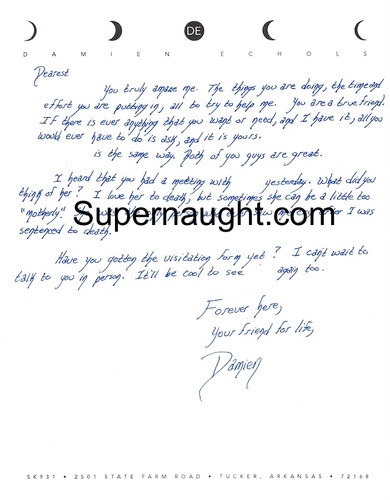 DE
DAMIEN ECHOLS
Dearest
You truly amaze me. The things you are doing, the time and
effort you are putting in, all to try to help me. You are a true friend.
If there is ever anything that you want or need, and I have it, all you
would ever have to do is ask, and it is yours.
is the same way. Both of you guys are great.
I heard that you had a meeting with yesterday. What did you
think of her? I love her to death, but sometimes she can be a little too
"motherly"
Supernaught.com
I was
sentenced to death.
Have you gotten the visitation form yet? I can't wait to
talk to you in person. It'll be cool to see again too.
Forever here,
Your friend for life,
Damien
SK931 • 2501 STATE FARM ROAD • TUCKER, ARKANSAS • 72168